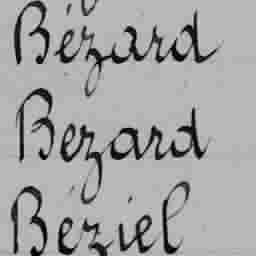 Bézard
Bezard
Béziel